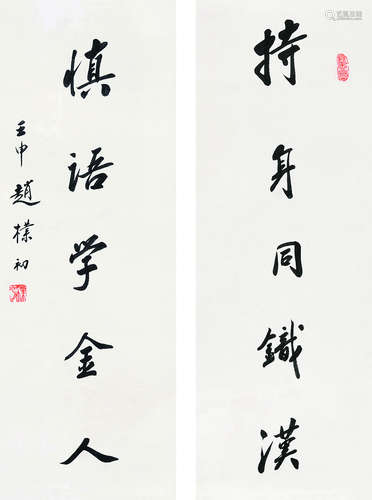 持身同鐵漢
慎語学金人
壬申趙樸初